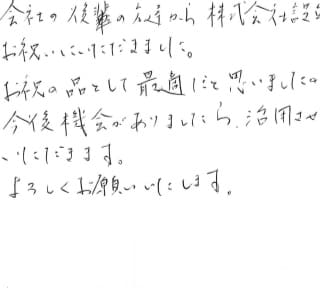 会社の後輩の方から株式会社設
お祝いいただきました。
お祝の品として最適だと思いましたの
今後機会がありましたら、活用させ
いただきます。
よろしくお願いいたします。